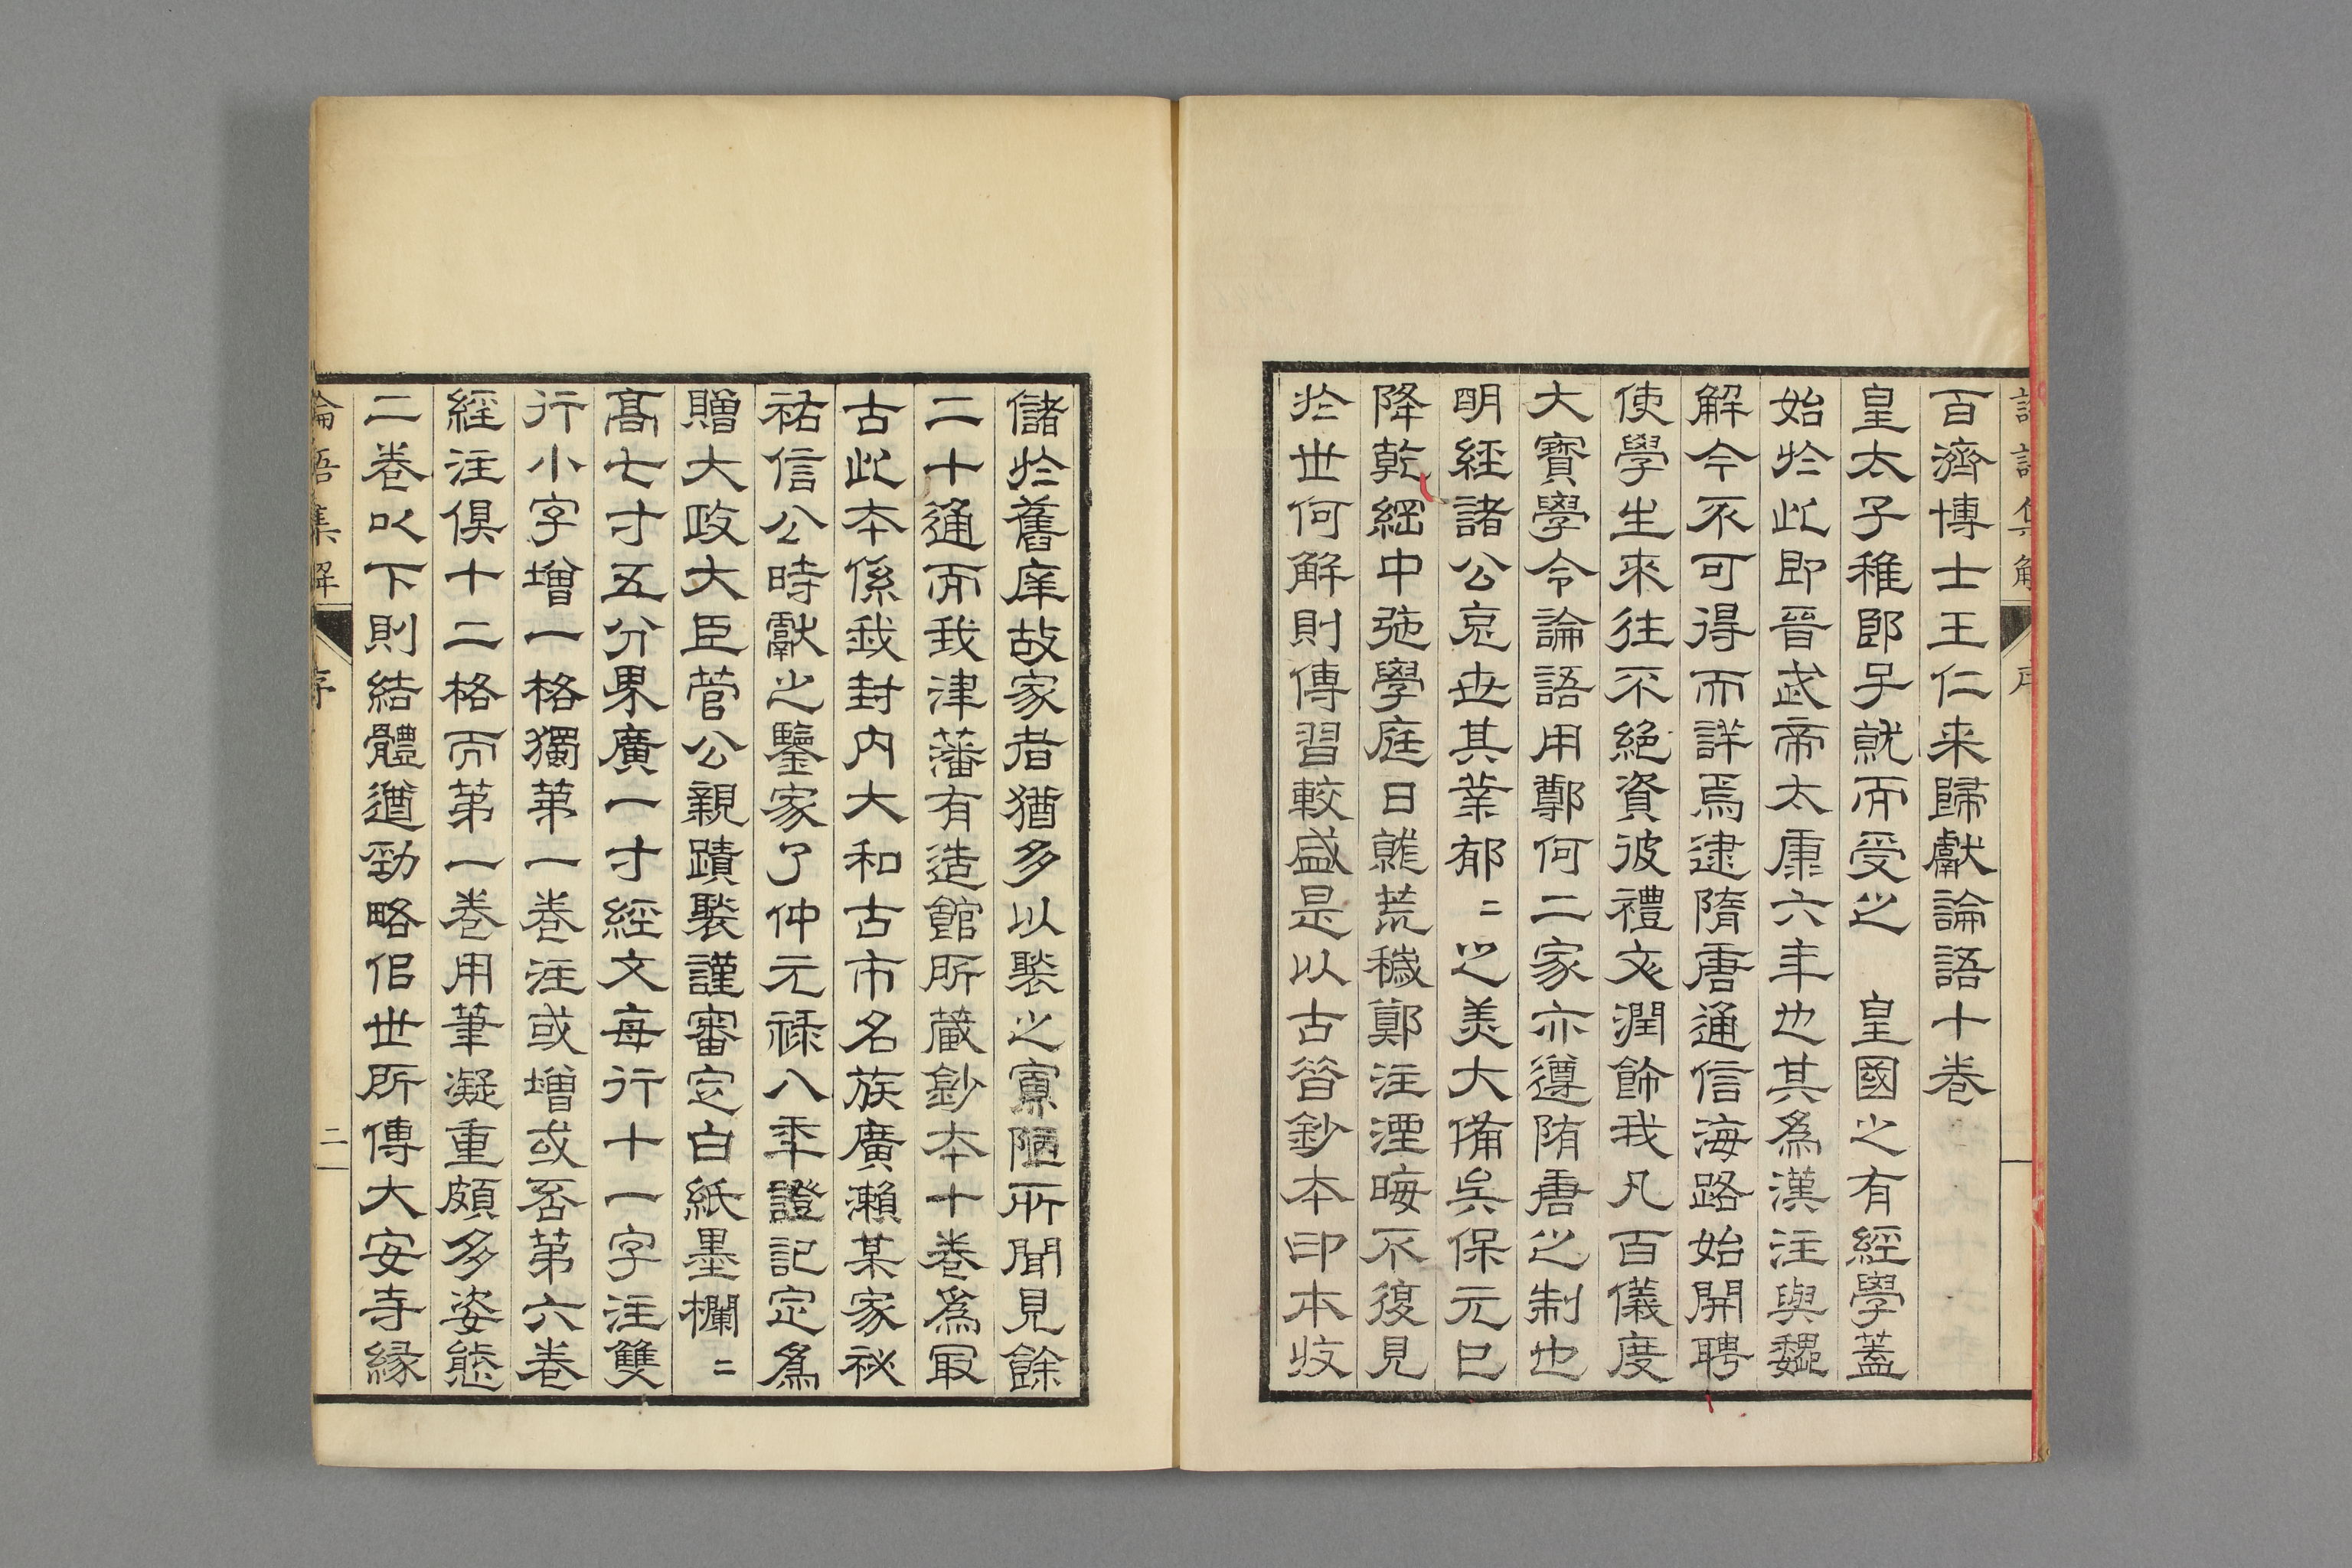 百濟博士王仁来歸獻論語十卷
皇太子稚郎子就而受之　皇國之有經學蓋
始於此即晉武帝太康六年也其爲漢注與魏
解今不可得而詳焉逮隋唐通信海路始開聘
使學生來往不絕資彼禮文潤飾我凡百儀度
大寶學令論語用鄭何二家亦遵隋唐之制也
明經諸公克世其業郁〻之美大備矣保元已
降乾綱中弛學庭日就荒穢鄭注湮晦不復見
於世何解則傳習較盛是以古皆鈔本印本收
儲於舊庠故家者猶多以㷉之寡陋所聞見餘
二十通而我津藩有造館所蔵鈔本十卷爲冣
古此本係我封内大和古市名族廣瀬某家祕
祐信公時獻之鑒家了仲元祿八年證記定爲
贈大政大臣菅公親蹟㷉謹審定白紙墨欄〻
高七寸五分界廣一寸經文每行十一字注雙
行小字增一格獨第一卷注或增或否第六卷
經注俱十二格而第一卷用筆凝重頗多姿態
二卷以下則結體遒勁略佀世所傳大安寺縁
論語集解
序
二